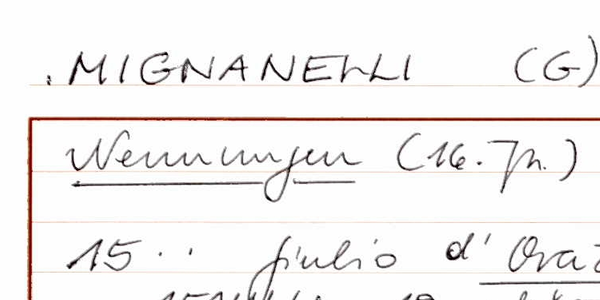 . MIGNANELLI (G)
Nennungen (16. Jh.)
15 . . Giulio d'Oraz